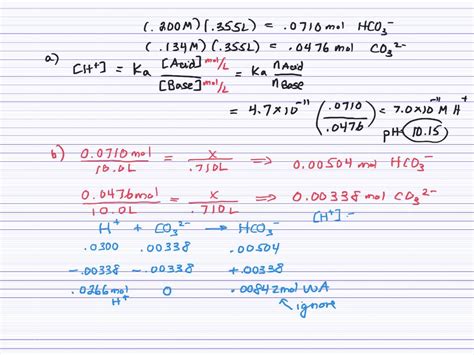 (.200M)(.355L) = .0710 mol HCO₃⁻
(.134M)(.355L) = .0476 mol CO₃²⁻
a) [H⁺] = Ka [Acid] mol/L / [Base] mol/L = Ka nAcid / nBase
= 4.7×10⁻¹¹ (.0710 / .0476) = 7.0×10⁻¹¹ M H⁺
pH = 10.15
b) 0.0710 mol / 10.0L = x / .710L ⟹ 0.00504 mol HCO₃⁻
0.0476 mol / 10.0L = x / .710L ⟹ 0.00338 mol CO₃²⁻
[H⁺] =
H⁺ + CO₃²⁻ → HCO₃⁻
.0300 .00338 .00504
-.00338 -.00338 +.00338
.0266 mol H⁺ 0 .00842 mol WA
ignore